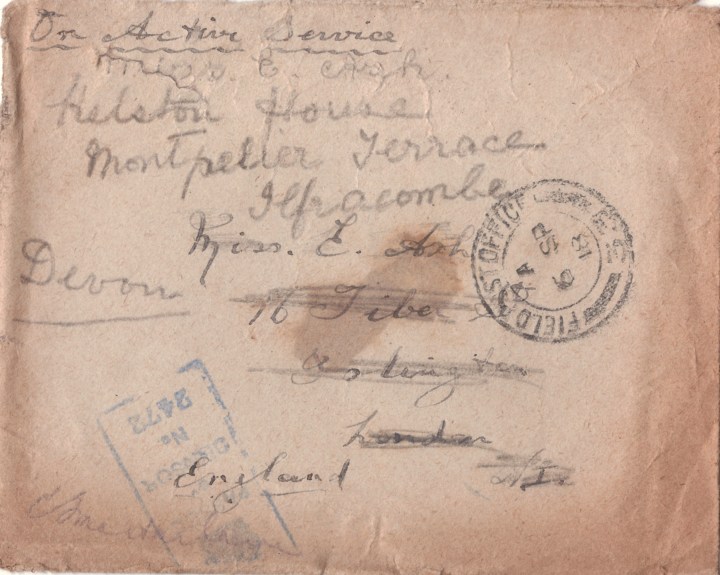 On Active Service
Miss. E. Ash.
Helston House
Montpelier Terrace
Ilfracombe
Devon
Miss. E. Ash
16 Tiber
Islington
London
N1.
England
FIELD POST OFFICE
SP
18
CENSOR
No
2472